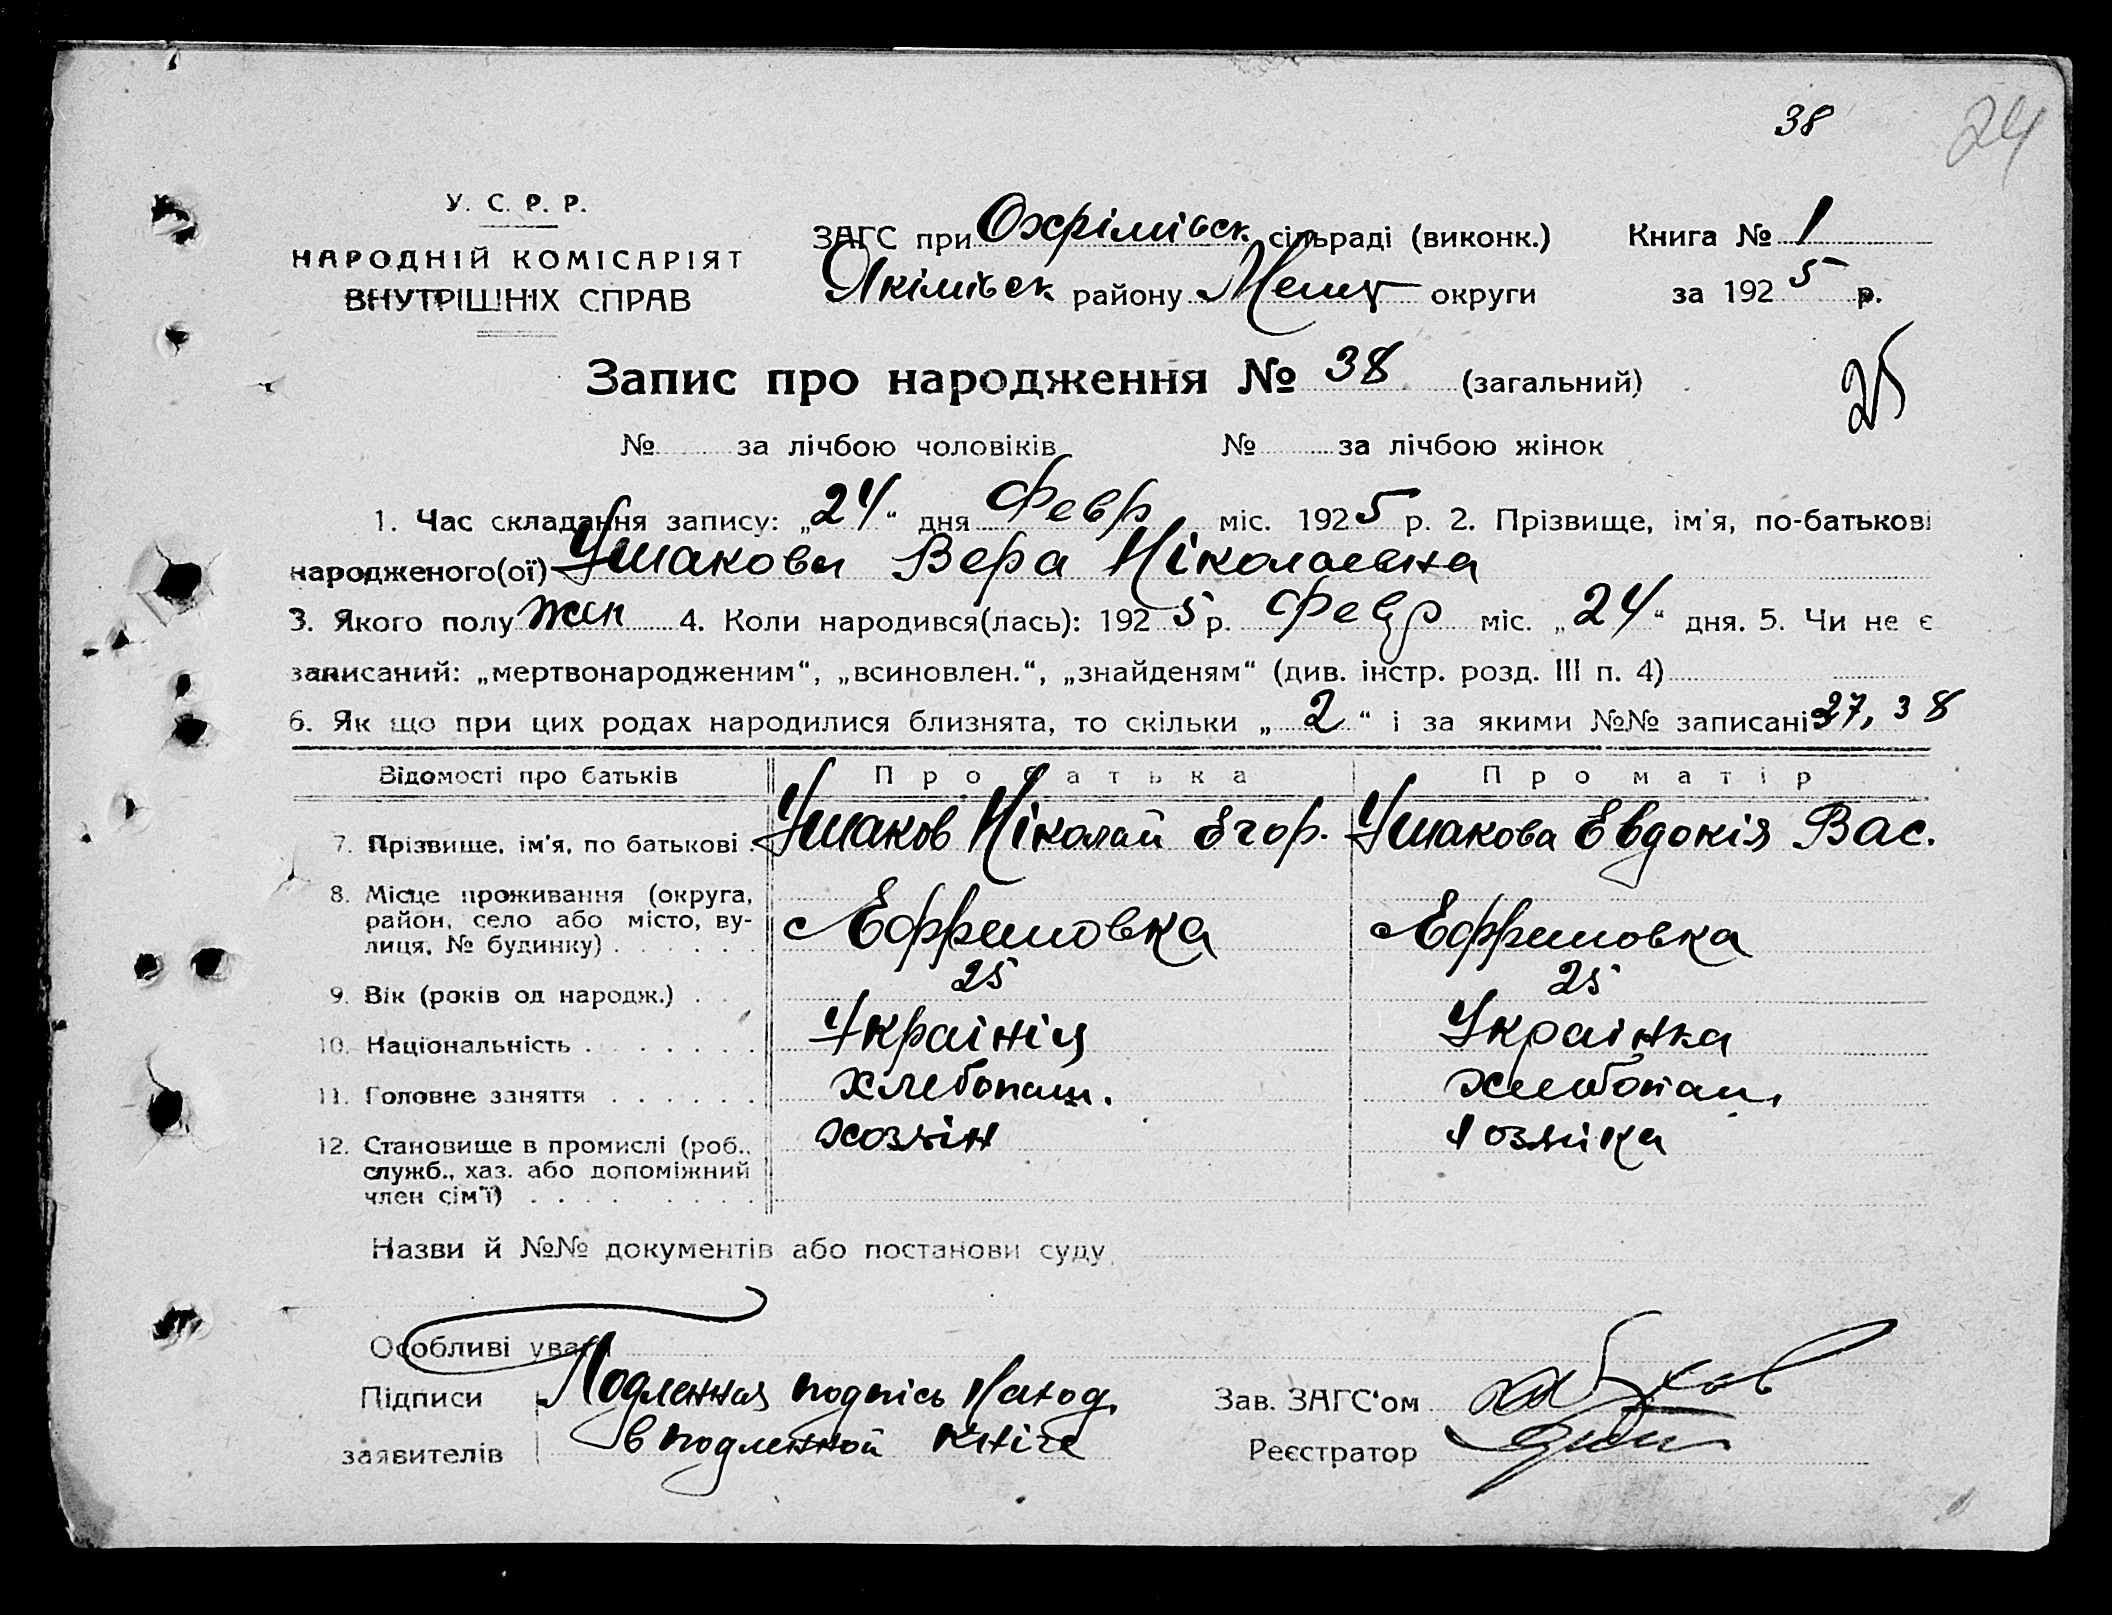 38
24
У. С. Р. Р.
НАРОДНІЙ КОМІСАРІЯТ
ВНУТРІШНІХ СПРАВ
ЗАГС при Охрімівск сільраді (виконк.) Книга № 1
Якімівск району Меліт округи за 192 5 р.
Запис про народження № 38 (загальний)
25
№ за лічбою чоловіків № за лічбою жінок
1. Час складання запису: „24“ дня Февр міс. 1925 р. 2. Прізвище, ім'я, по-батькові
народженого(ої) Ушакова Вера Ніколаевна
3. Якого полу жен 4. Коли народився(лась): 192 5 р. Февр міс. „24“ дня. 5. Чи не є
записаний: „мертвонародженим“, „всиновлен.“, „знайденям“ (див. інстр. розд. III п. 4)
6. Як що при цих родах народилися близнята, то скільки „ 2 “ і за якими №№ записані 37, 38
Відомості про батьків Про батька Про матір
7. Прізвище, ім'я, по батькові . Ушаков Ніколай Егор. Ушакова Евдокія Вас.
8. Місце проживання (округа,
район, село або місто, ву-
лиця, № будинку) . . . . . Ефремовка Ефремовка
9. Вік (років од народж.) . . 25 25
10. Національність . . . . . . . Украініц Украінка
11. Головне заняття . . . . . . хлебопаш. хлебопаш.
12. Становище в промислі (роб.,
служб., хаз. або допоміжний
член сім'ї) . . . . . . . . хозяін хозяйка
Назви й №№ документів або постанови суду
Особливі уваги
Підписи Подленная подпісь наход. Зав. ЗАГС'ом
заявителів в подленной кніге Реєстратор